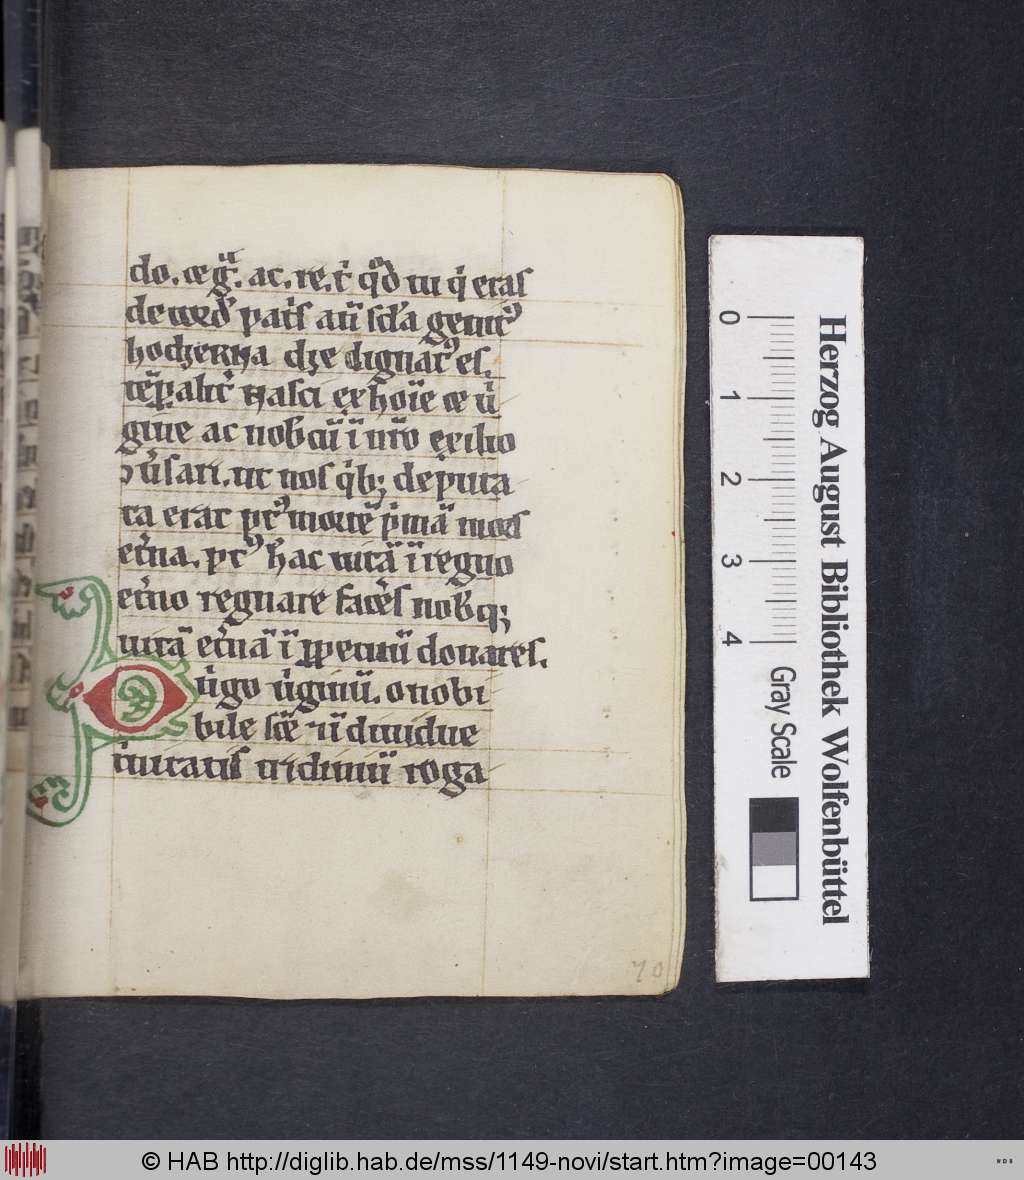 do. et gr̄a. ac. re. t̓ qͦd tu q̓ eras
de corde pat̓s an̄ scl̓a genit᷒
hodierna die dignat᷒ es.
te̅p̱alit̓ nasci ex ho̅i̅e et v̓
gine ac nobcu̅ i̅ nr̅o exilio
ꝯv̓sari. ut nos q̓b; deputa
ta erat pt᷒ morte̅ p̓ma̅ mors
et̓na. pt᷒ hac vita̅ i̅ regno
et̓no regnare fac̓es nob̓q;
vita̅ et̓na̅ i̅ ꝑpetuu̅ donares.
O v̓go v̓ginu̅. o nobi
bile sc̅e ⁊ i̅diuidue
t̓nitatis tricliniu̅ roga
70
0
1
2
3
4
Gray Scale
Herzog August Bibliothek Wolfenbüttel
© HAB http://diglib.hab.de/mss/1149-novi/start.htm?image=00143